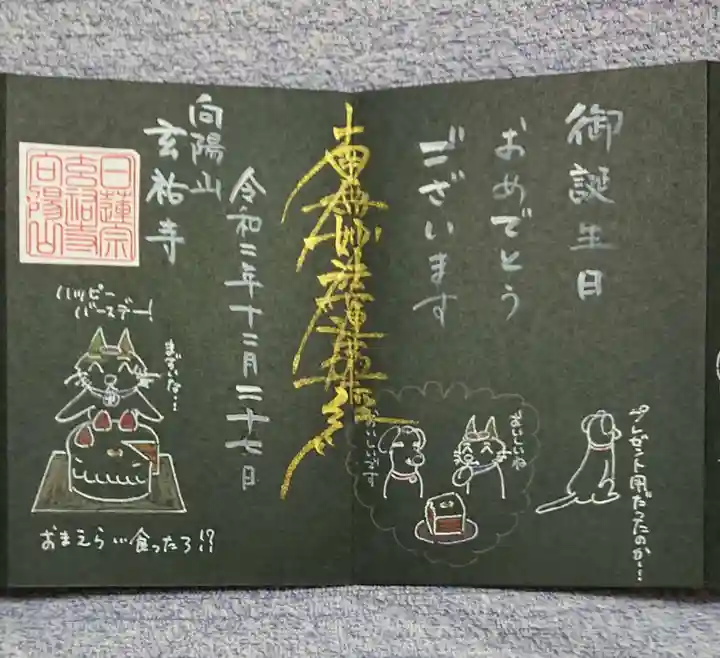 御誕生日
おめでとう
ございます
南無妙法蓮華経
令和二年十二月二十七日
向陽山
玄祐寺
日蓮宗
玄祐寺
向陽山
プレゼント用だったのか…
おいしいね
おいしいです
ハッピー
バースデー!
まずいな…
おまえらい食ったろ!?